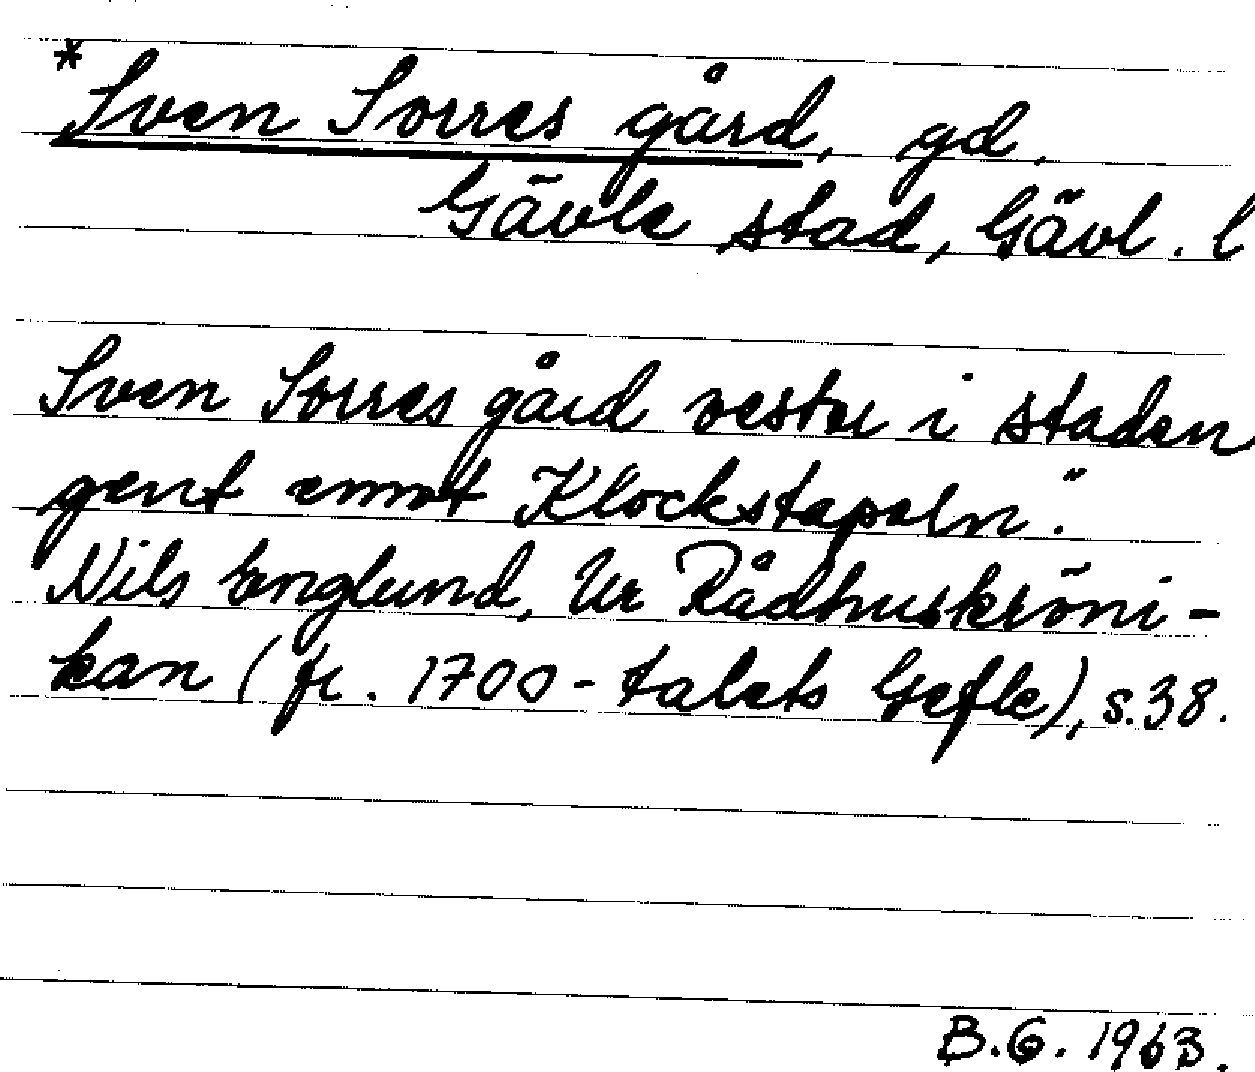 *Sven Sorres gård, gd,
Gävle stad, Gävl. l
Sven Sorres gård vester i staden
gent emot Klockstapeln".
Nils Englund, Ur Rådhuskröni-
kan (fr. 1700-talets Gefle), s. 38.
B.G. 1963.